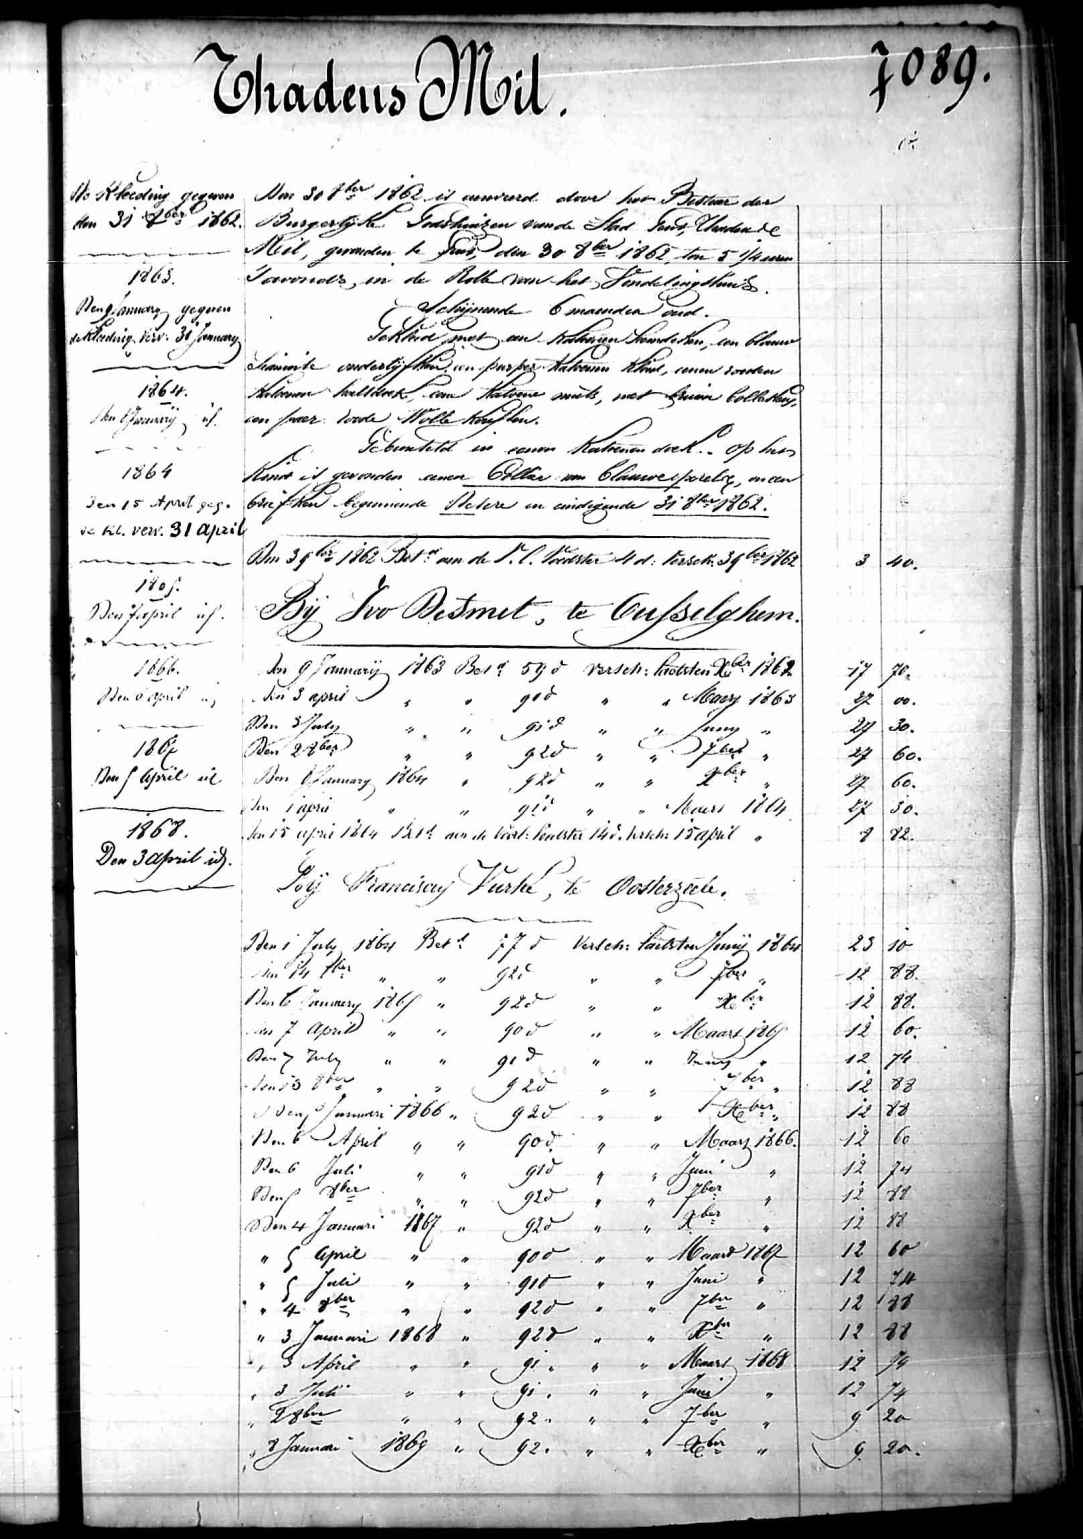 Thadeus Mil.
7089.
De Kleeding gegeven
den 31 8ber 1862.
1863.
Den 9 January gegeven
de Kleeding verv. 31 January
1864.
den 8 January id.
1864
Den 15 April geg.
de Kl. verv. 31 april
1865.
Den 7 april id.
1866.
Den 6 april id
1867
Den 5 April id
1868.
Den 3 april id.
Den 30 8ber 1862 is aenveerd door het Bestuer der
Burgerlijke Godshuizen van de Stad Gent Thadeus
Mil, gevonden te Gent, den 30 8ber 1862 ten 5 1/4 uren
S'avonds, in de Rolle van het Vondelingshuis.
Schijnende 6 maenden oud.
Gekleed met een Katoenen hemdeken, een blauw
onderlijfken, een purper Katoenen Kleed, eenen rooden
Katoenen halsdoek, eene Katoene muts, met
een paer roode Wolle Kousjens.
Gebunseld in eenen Katoenen doek. Op het
Kind is gevonden eenen Collier van blauwe perels, en een
briefken beginnende en eindigende 31 8ber 1862.
Den 3 9ber 1862 Bet. aen de V. C. Voedster 4 d: Versch. 3 9ber 1862 3 40.
Bij Ivo DeSmet, te Ousselghem.
Den 9 January 1863 Bet. 59 d versch: laetsten Xber 1862 17 70.
Den 3 april " " 90 d " " Maerz 1863 27 00.
Den 3 July " " 91 d " " Juny " 27 30.
Den 2 8ber " " 92 d " " 7ber " 27 60.
Den 8 January 1864 " 92 d " " Xber " 27 60.
Den 1 april " " 91 d " " Maers 1864 27 30.
Den 15 april 1864 Bet. aen de Voedster 14 d. Versch. 15 april " 8 82.
Bij Franciscus te Oosterzeele.
Den 1 July 1864 Bet. 77 d Versch: laetsten Juny 1864 23 10
Den 14 8ber " " 92 d " " 7ber " 12 88.
Den 6 January 1865 " 92 d " " Xber " 12 88.
Den 7 April " " 90 d " " Maart 1865 12 60.
Den 7 July " " 91 d " " Juny " 12 74
Den 13 8ber " " 92 d " " 7ber " 12 88
Den 5 Januari 1866 " 92 d " " Xber " 12 88
Den 6 April " " 90 d. " " Maart 1866. 12 60
Den 6 Juli " " 91 d " " Juni " 12 74
Den 5 8ber " " 92 d " " 7ber " 12 88
Den 4 Januari 1867 " 92 d " " Xber " 12 88
" 5 April " " 90 d " " Maart 1867 12 60
" 5 Juli " " 91 d " " Juni " 12 74
" 4 8ber " " 92 d " " 7ber " 12 88
" 3 Januari 1868 " 92 d " " Xber " 12 88
" 3 April " " 91 " " " Maart 1868 12 74
" 3 Juli " " 91 " " " Juni " 12 74
" 2 8ber " " 92 " " " 7ber " 9 20
" 8 Januari 1869 " 92 " " " Xber " 9 20.